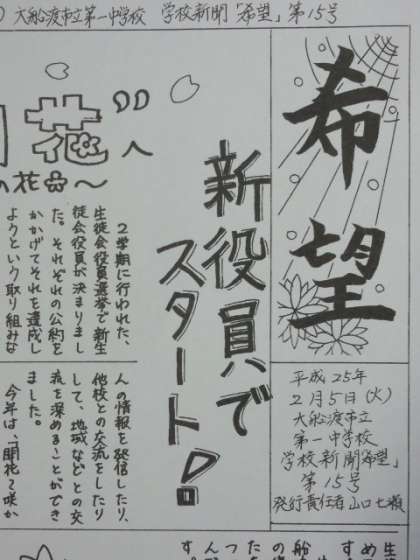 大船渡市立第一中学校 学校新聞「希望」第15号
希望
平成25年
2月5日(火)
大船渡市立
第一中学校
学校新聞「希望」
第15号
発行責任者 山口七瀬
新役員で
スタート!
花”へ
の花～
2学期に行われた、
生徒会役員選挙で新生
徒会役員が決まりまし
た。それぞれの公約を
かかげてそれを達成し
ようという取り組みな
人の情報を発信したり、
他校との交流をしたり
して、地域などとの交
流を深めることができ
ました。
今年は、「開花〜咲か